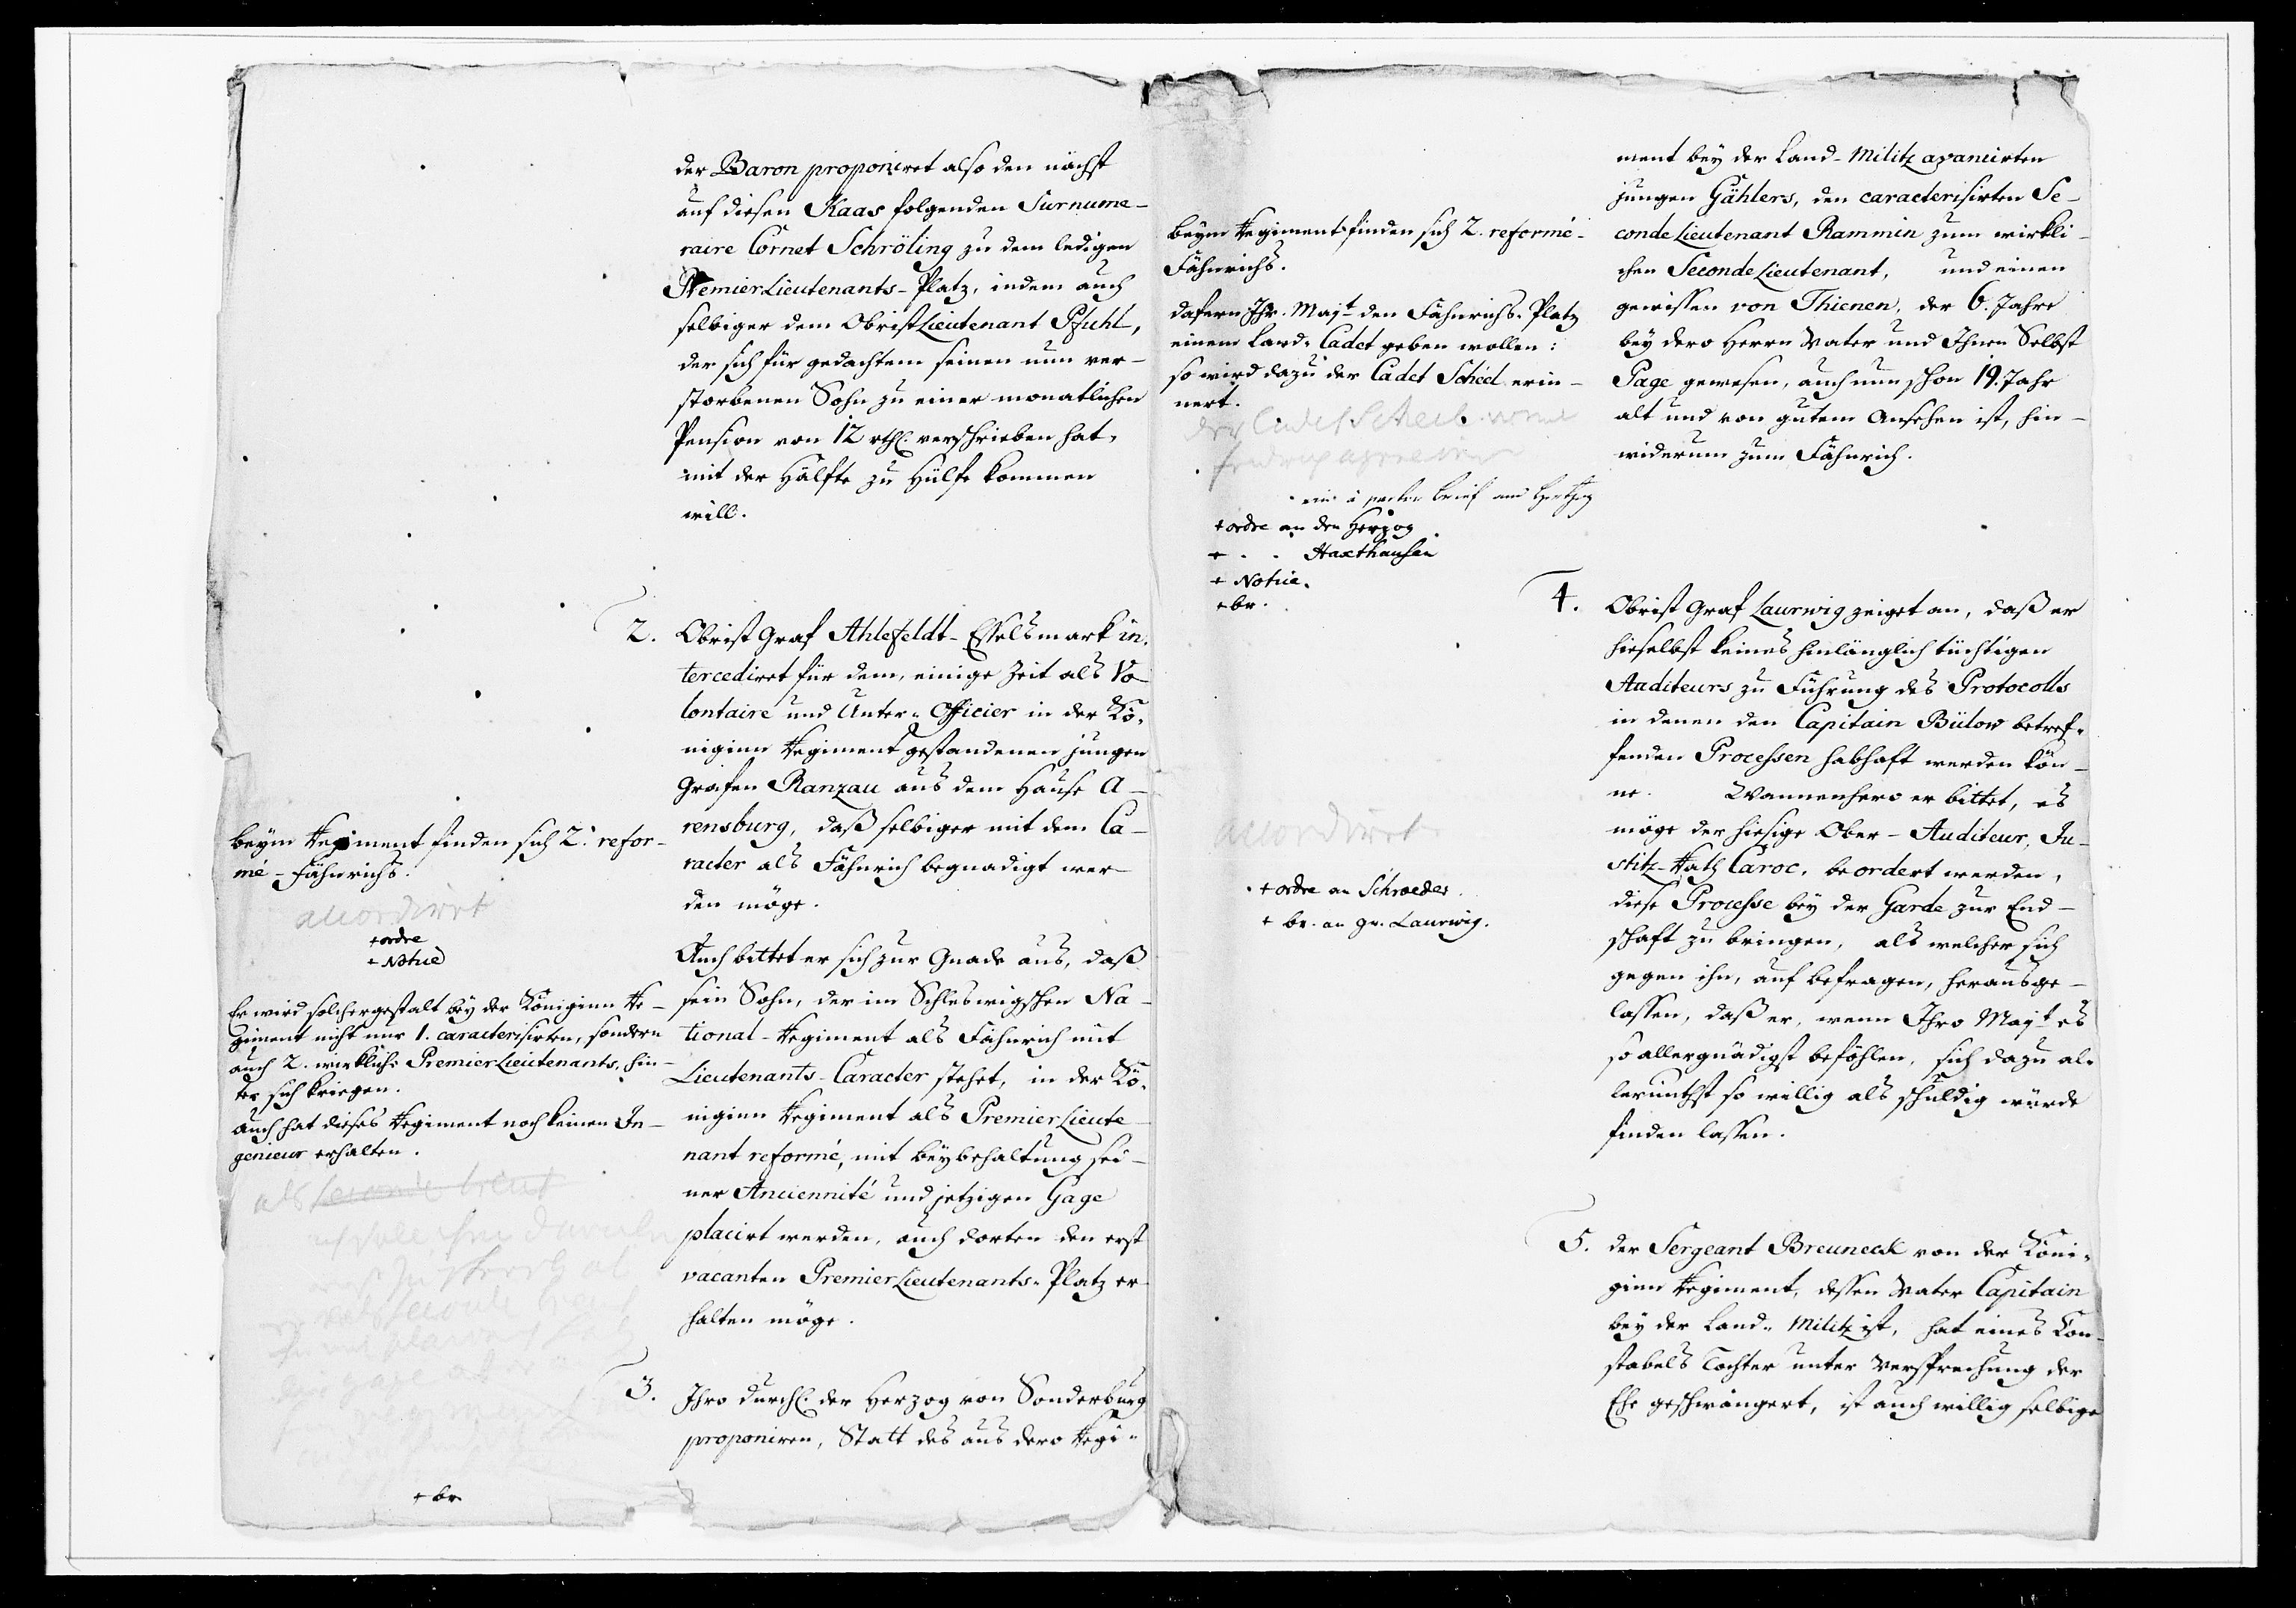 der Baron proponiret also den nächst
auf diesen Kaas folgenden Surnume-
raire Cornet Schröling zu dem ledigen
Premier Lieutenants-Platz, indem auch
selbiger dem Obrist Lieutenant Pfuhl,
der sich für gedachtem seinen nun ver-
storbenen Sohn zu einer monatlichen
Pension von 12 rthl. verschrieben hat,
mit der Hälfte zu Hülfe kommen
will.
2. Obrist Graf Ahlefeldt-Esselsmark in-
tercediret für dem, einige Zeit als Vo-
lontaire und Unter-Officier in der Kö-
niginn Regiment gestandenen jungen
Grafen Ranzau aus dem Hause A-
rensburg, daß selbiger mit dem Ca-
racter als Fähnrich begnadigt wer-
den möge.
beym Regiment finden sich 2. refor-
mé-Fähnrichs.
accordiret
+ ordre
+ Notice
Auch bittet er sich zur Gnade aus, daß
sein Sohn, der im Schleswigschen Na-
tional-Regiment als Fähnrich mit
Lieutenants-Caracter stehet, in der Kö-
niginn Regiment als Premier Lieute-
nant reformé, mit beybehaltung sei-
ner Anciennité und jetzigen Gage
placirt werden, auch dorten den erst
vacanten Premier Lieutenants-Platz er-
halten möge.
Er wird solchergestalt bey der Königinn Re-
giment nicht nur 1. caracterisirten, sondern
auch 2. wirkliche Premier Lieutenants, hin-
ter sich kriegen.
auch hat dieses Regiment noch keinen In-
genieur erhalten.
als seconde lieut
+ br
3. Ihro Durchl. der Herzog von Sonderburg
proponiren, Statt des aus dero Regi-
ment bey der Land-Militz avancirten
jungen Gählers, den caracterisirten Se-
conde Lieutenant Rammin zum wirkli-
chen Seconde Lieutenant, und einen
gewissen von Thienen, der 6. Jahre
bey dero Herrn Vater und Ihnen Selbst
Page gewesen, auch nun schon 19. Jahr
alt und von gutem Ansehen ist, hin-
widerum zum Fähnrich.
beym Regiment finden sich 2. reformé-
Fähnrichs.
dafern Ihr. Majt. den Fähnrichs-Platz
einem Land-Cadet geben wollen:
so wird dazu der Cadet Scheel erin-
nert.
der Cadet Scheel
ein à parter brief an Hertzog
+ ordre an den Herzog
+ - - Haxthausen
+ Notice.
+ br.
4. Obrist Graf Laurwig zeiget an, daß er
hieselbst keines hinlänglich tüchtigen
Auditeurs zu Führung des Protocolls
in denen den Capitain Bülow betref-
fenden Processen habhaft werden kön-
ne. Wannenhero er bittet, es
möge der hiesige Ober-Auditeur, Ju-
stitz-Rath Caroc, beordert werden,
diese Processe bey der Garde zur End-
schaft zu bringen, als welcher sich
gegen ihn, auf befragen, herausge-
lassen, daß er, wenn Ihro Majt. es
so allergnädigst beföhlen, sich dazu al-
lerunthst so willig als schuldig würde
finden lassen.
accordiret
+ ordre an Schroeder.
+ br. an gr. Laurwig.
5. der Sergeant Breuneck von der Köni-
ginn Regiment, dessen Vater Capitain
bey der Land-Militz ist, hat eines Con-
stabels Tochter unter Versprechung der
Ehe geschwängert, ist auch willig selbige